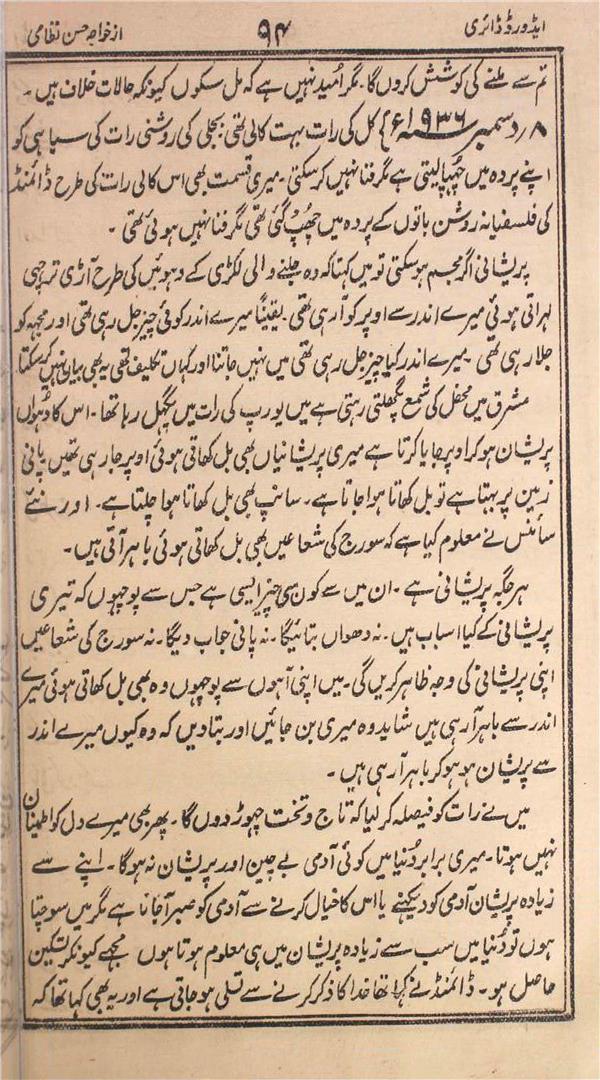 ایڈورڈ ڈائری
۹۴
از خواجہ حسن نظامی
تم سے ملنے کی کوشش کروں گا۔ مگر اُمید نہیں ہے کہ مل سکوں کیونکہ حالات خلاف ہیں۔
۸ دسمبر ۱۹۳۶ء} کل کی رات بہت کالی تھی۔ بجلی کی روشنی رات کی سیاہی کو
اپنے پردہ میں چھپا لیتی ہے مگر فنا نہیں کر سکتی۔ میری قسمت بھی اس کالی رات کی طرح ڈائمنڈ
کی فلسفیانہ روشن باتوں کے پردہ میں چھپ گئی تھی مگر فنا نہیں ہوئی تھی۔
پریشانی اگر مجسم ہو سکتی تو میں کہتا کہ وہ جلنے والی لکڑی کے دہوئیں کی طرح آڑی ترچھی
لہراتی ہوئی میرے اندر سے اوپر کو آ رہی تھی۔ یقیناً میرے اندر کوئی چیز جل رہی تھی اور مجہہ کو
جلا رہی تھی۔ میرے اندر کیا چیز جل رہی تھی میں نہیں جانتا اور کہاں تکلیف تھی یہ بھی بیان نہیں کر سکتا
مشرق میں محفل کی شمع پگھلتی رہتی ہے میں یورپ کی رات میں پگہل رہا تھا۔ اس کا دُہواں
پریشان ہو کر اوپر جایا کرتا ہے میری پریشانیاں بھی بل کھاتی ہوئی اوپر جا رہی تھیں پانی
زمین پر بہتا ہے تو بل کھاتا ہوا جاتا ہے۔ سانپ بھی بل کھاتا ہوا چلتا ہے۔ اور نئے
سائنس نے معلوم کیا ہے کہ سورج کی شعاعیں بھی بل کھاتی ہوئی باہر آتی ہیں۔
ہر جگہ پریشانی ہے۔ ان میں سے کون سی چیز ایسی ہے جس سے پوچہوں کہ تیری
پریشانی کے کیا اسباب ہیں۔ نہ دھواں بتائیگا۔ نہ پانی جواب دیگا۔ نہ سورج کی شعاعیں
اپنی پریشانی کی وجہ ظاہر کریں گی۔ میں اپنی آہوں سے پوچہوں وہ بھی بل کھاتی ہوئی میرے
اندر سے باہر آ رہی ہیں شاید وہ میری بن جائیں اور بتادیں کہ وہ کیوں میرے اندر
سے پریشان ہو ہو کر باہر آ رہی ہیں۔
میں نے رات کو فیصلہ کر لیا کہ تاج و تخت چہوڑ دوں گا۔ پھر بھی میرے دل کو اطمینان
نہیں ہوتا۔ میری برابر دُنیا میں کوئی آدمی بے چین اور پریشان نہ ہوگا۔ اپنے سے
زیادہ پریشان آدمی کو دیکہنے یا اس کا خیال کرنے سے آدمی کو صبر آ جاتا ہے مگر میں سوچتا
ہوں تو دُنیا میں سب سے زیادہ پریشان میں ہی معلوم ہوتا ہوں مجھے کیونکر تسکین
حاصل ہو۔ ڈائمنڈ نے کہا تھا خدا کا ذکر کرنے سے تسلی ہو جاتی ہے اور یہ بھی کہا تھا کہ